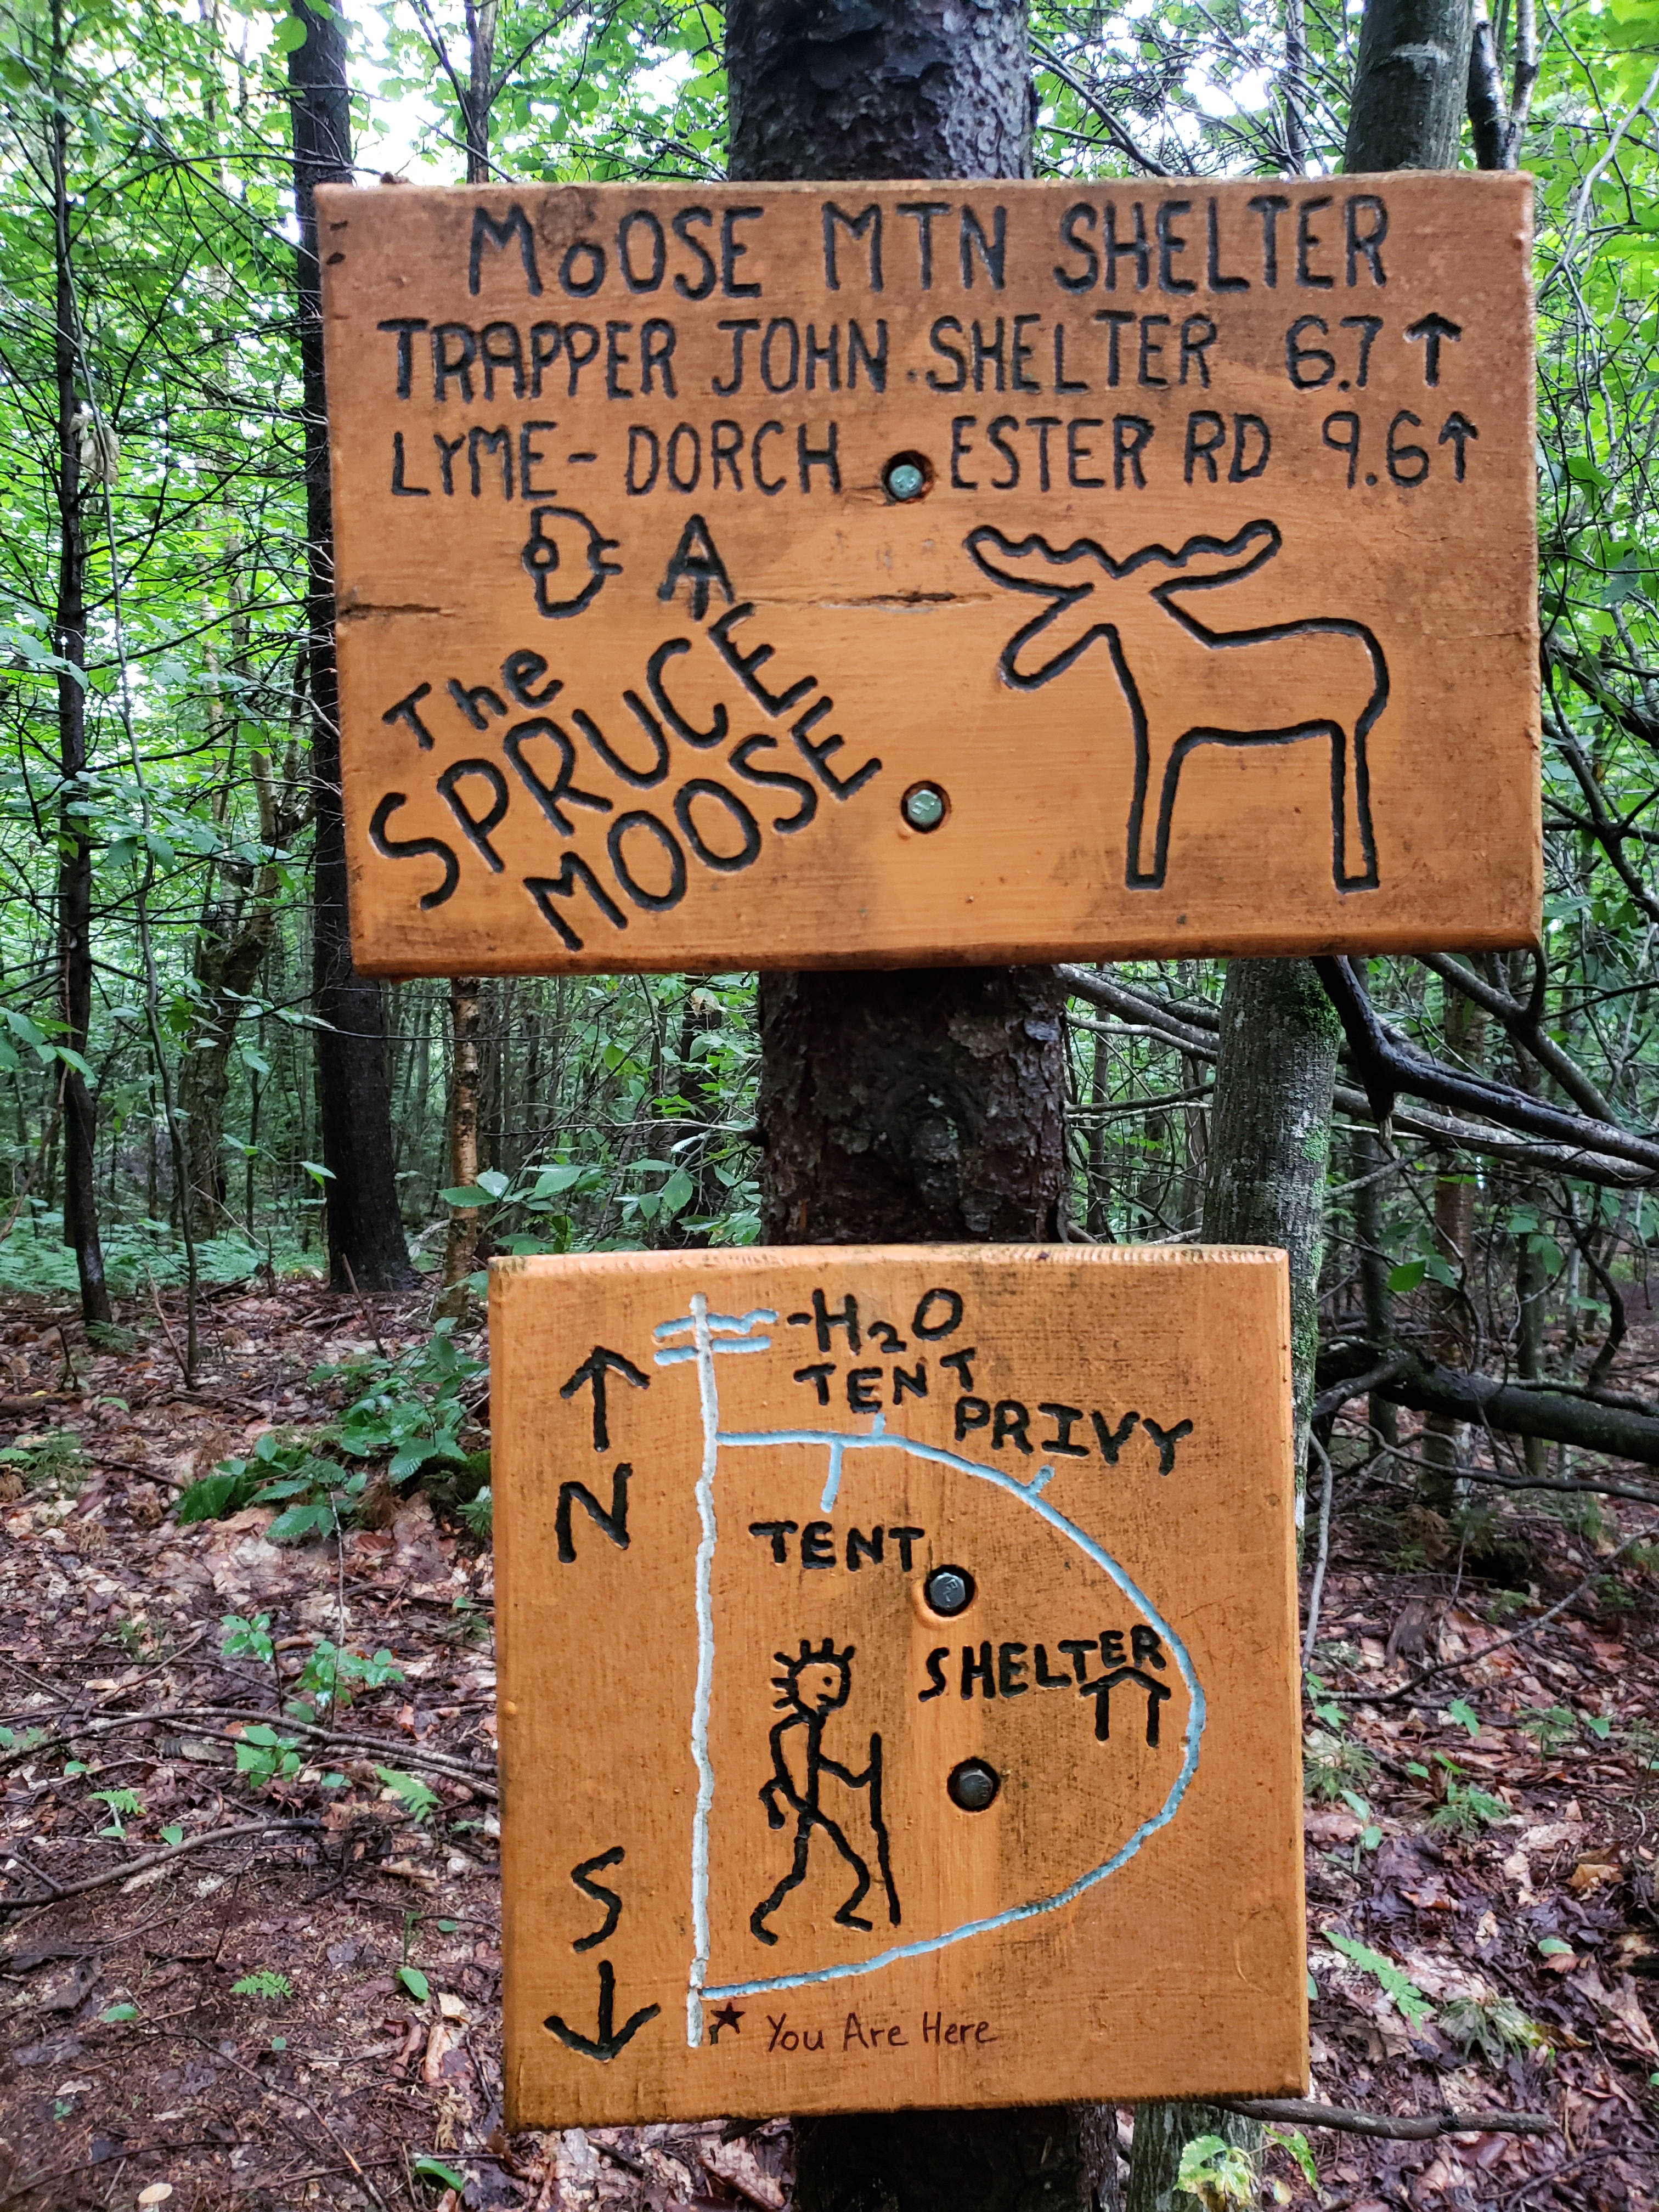 MOOSE MTN SHELTER
TRAPPER JOHN SHELTER 6.7 ↑
LYME-DORCH ESTER RD 9.6 ↑
The
SPRUCE
MOOSE
H2O
TENT
PRIVY
N
TENT
SHELTER
S
You Are Here